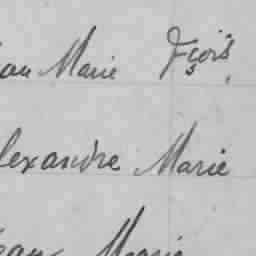 ean Marie Fçois
lexandre Marie
ean Marie